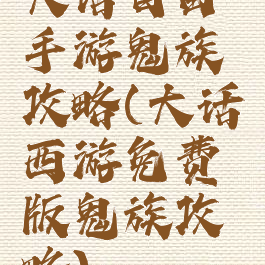 手游鬼族
攻略(大话
西游免费
版鬼族攻
略)